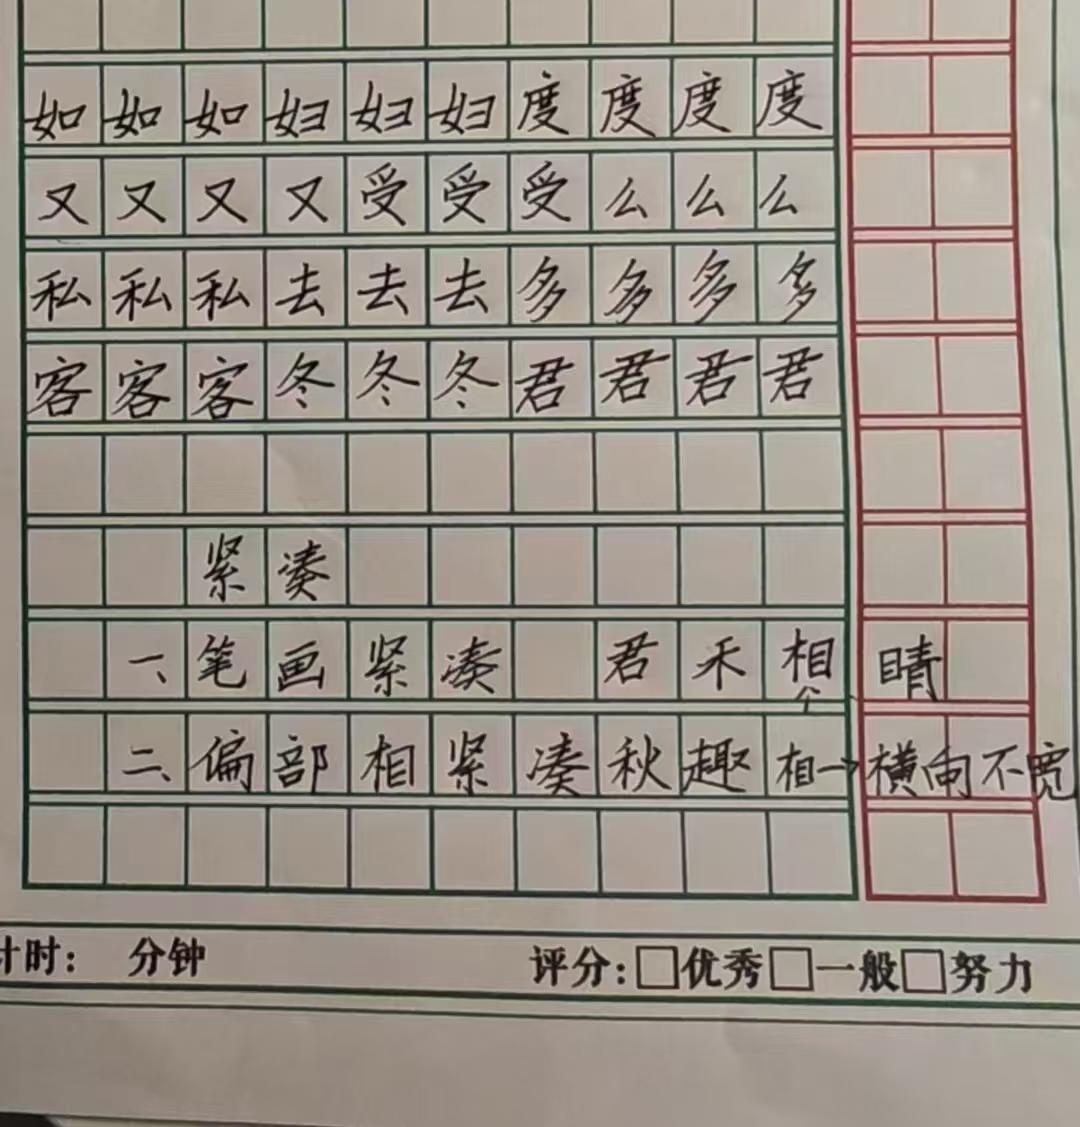 如如如妇妇妇度度度度
又又又又受受受么么么
私私私去去去多多多多
客客客冬冬冬君君君君
紧凑
一、笔画紧凑 君禾相 睛
个
二、偏部相紧凑秋趣相→横向不宽
计时： 分钟 评分：□优秀□一般□努力